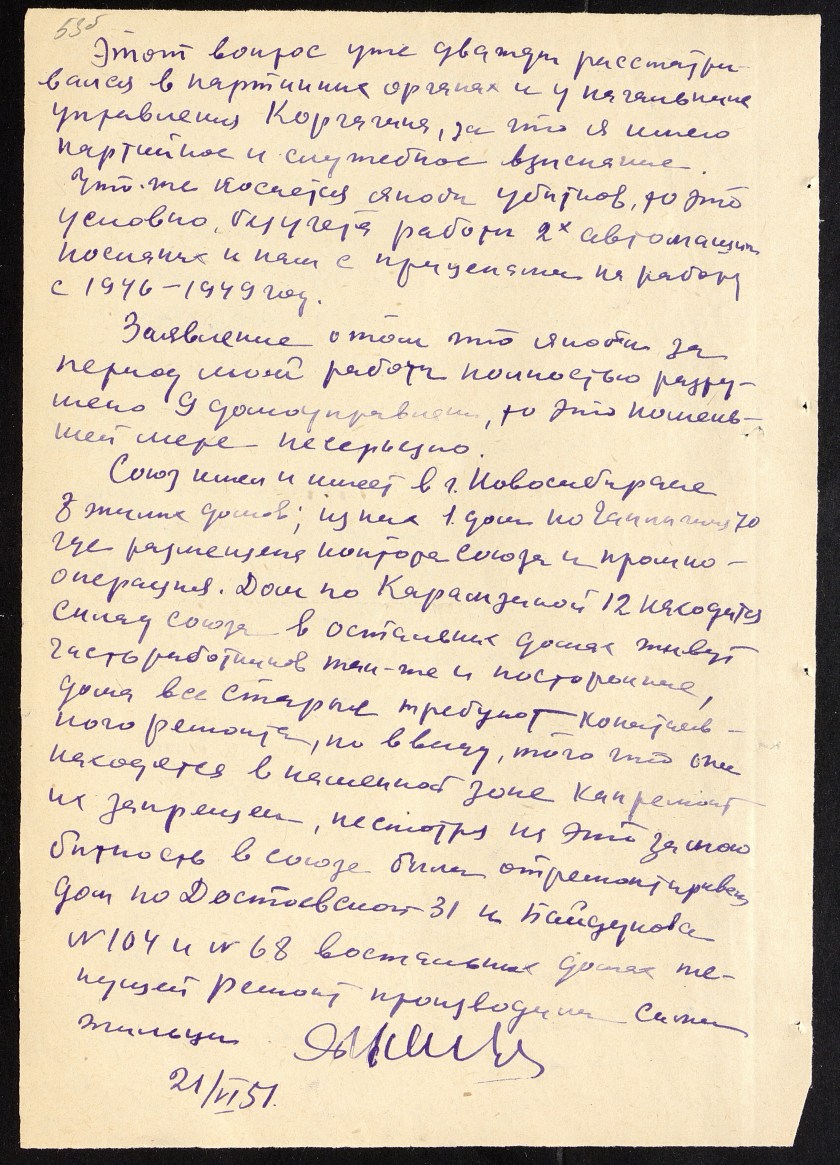 53об
Этот вопрос уже дважды рассматри-
вался в партийных органах и у начальника
управления Корчагина, за что я имею
партийное и служебное взыскание.
Что-же косается якобы убытков, то это
условно, без учета работы 2х автомашин
посланых и нам с прицепами на работу
с 1946-1949 год.
Заявление о том что якобы за
период моей работы полностью разру-
шено 9 домоуправлений, то это помень-
шей мере несерьезно.
Союз имел и имеет в г. Новосибирске
8 жилых домов; из них 1 дом по 70
где размещена контора союза и промко-
операция. Дом по Карамзиной 12 находится
склад союза в остальных домах живут
часть работников так-же и посторонние,
дома все старые требуют капиталь-
ного ремонта, но ввиду, того что они
находятся в каменной зоне капремонт
их запрещен, несмотря на это за мою
битность в союзе были отремонтированы
дом по Достоевской 31 и Байдукова
№ 104 и № 68 востальных домах те-
кущей ремонт производили сами
жильцы
21/VI 51.